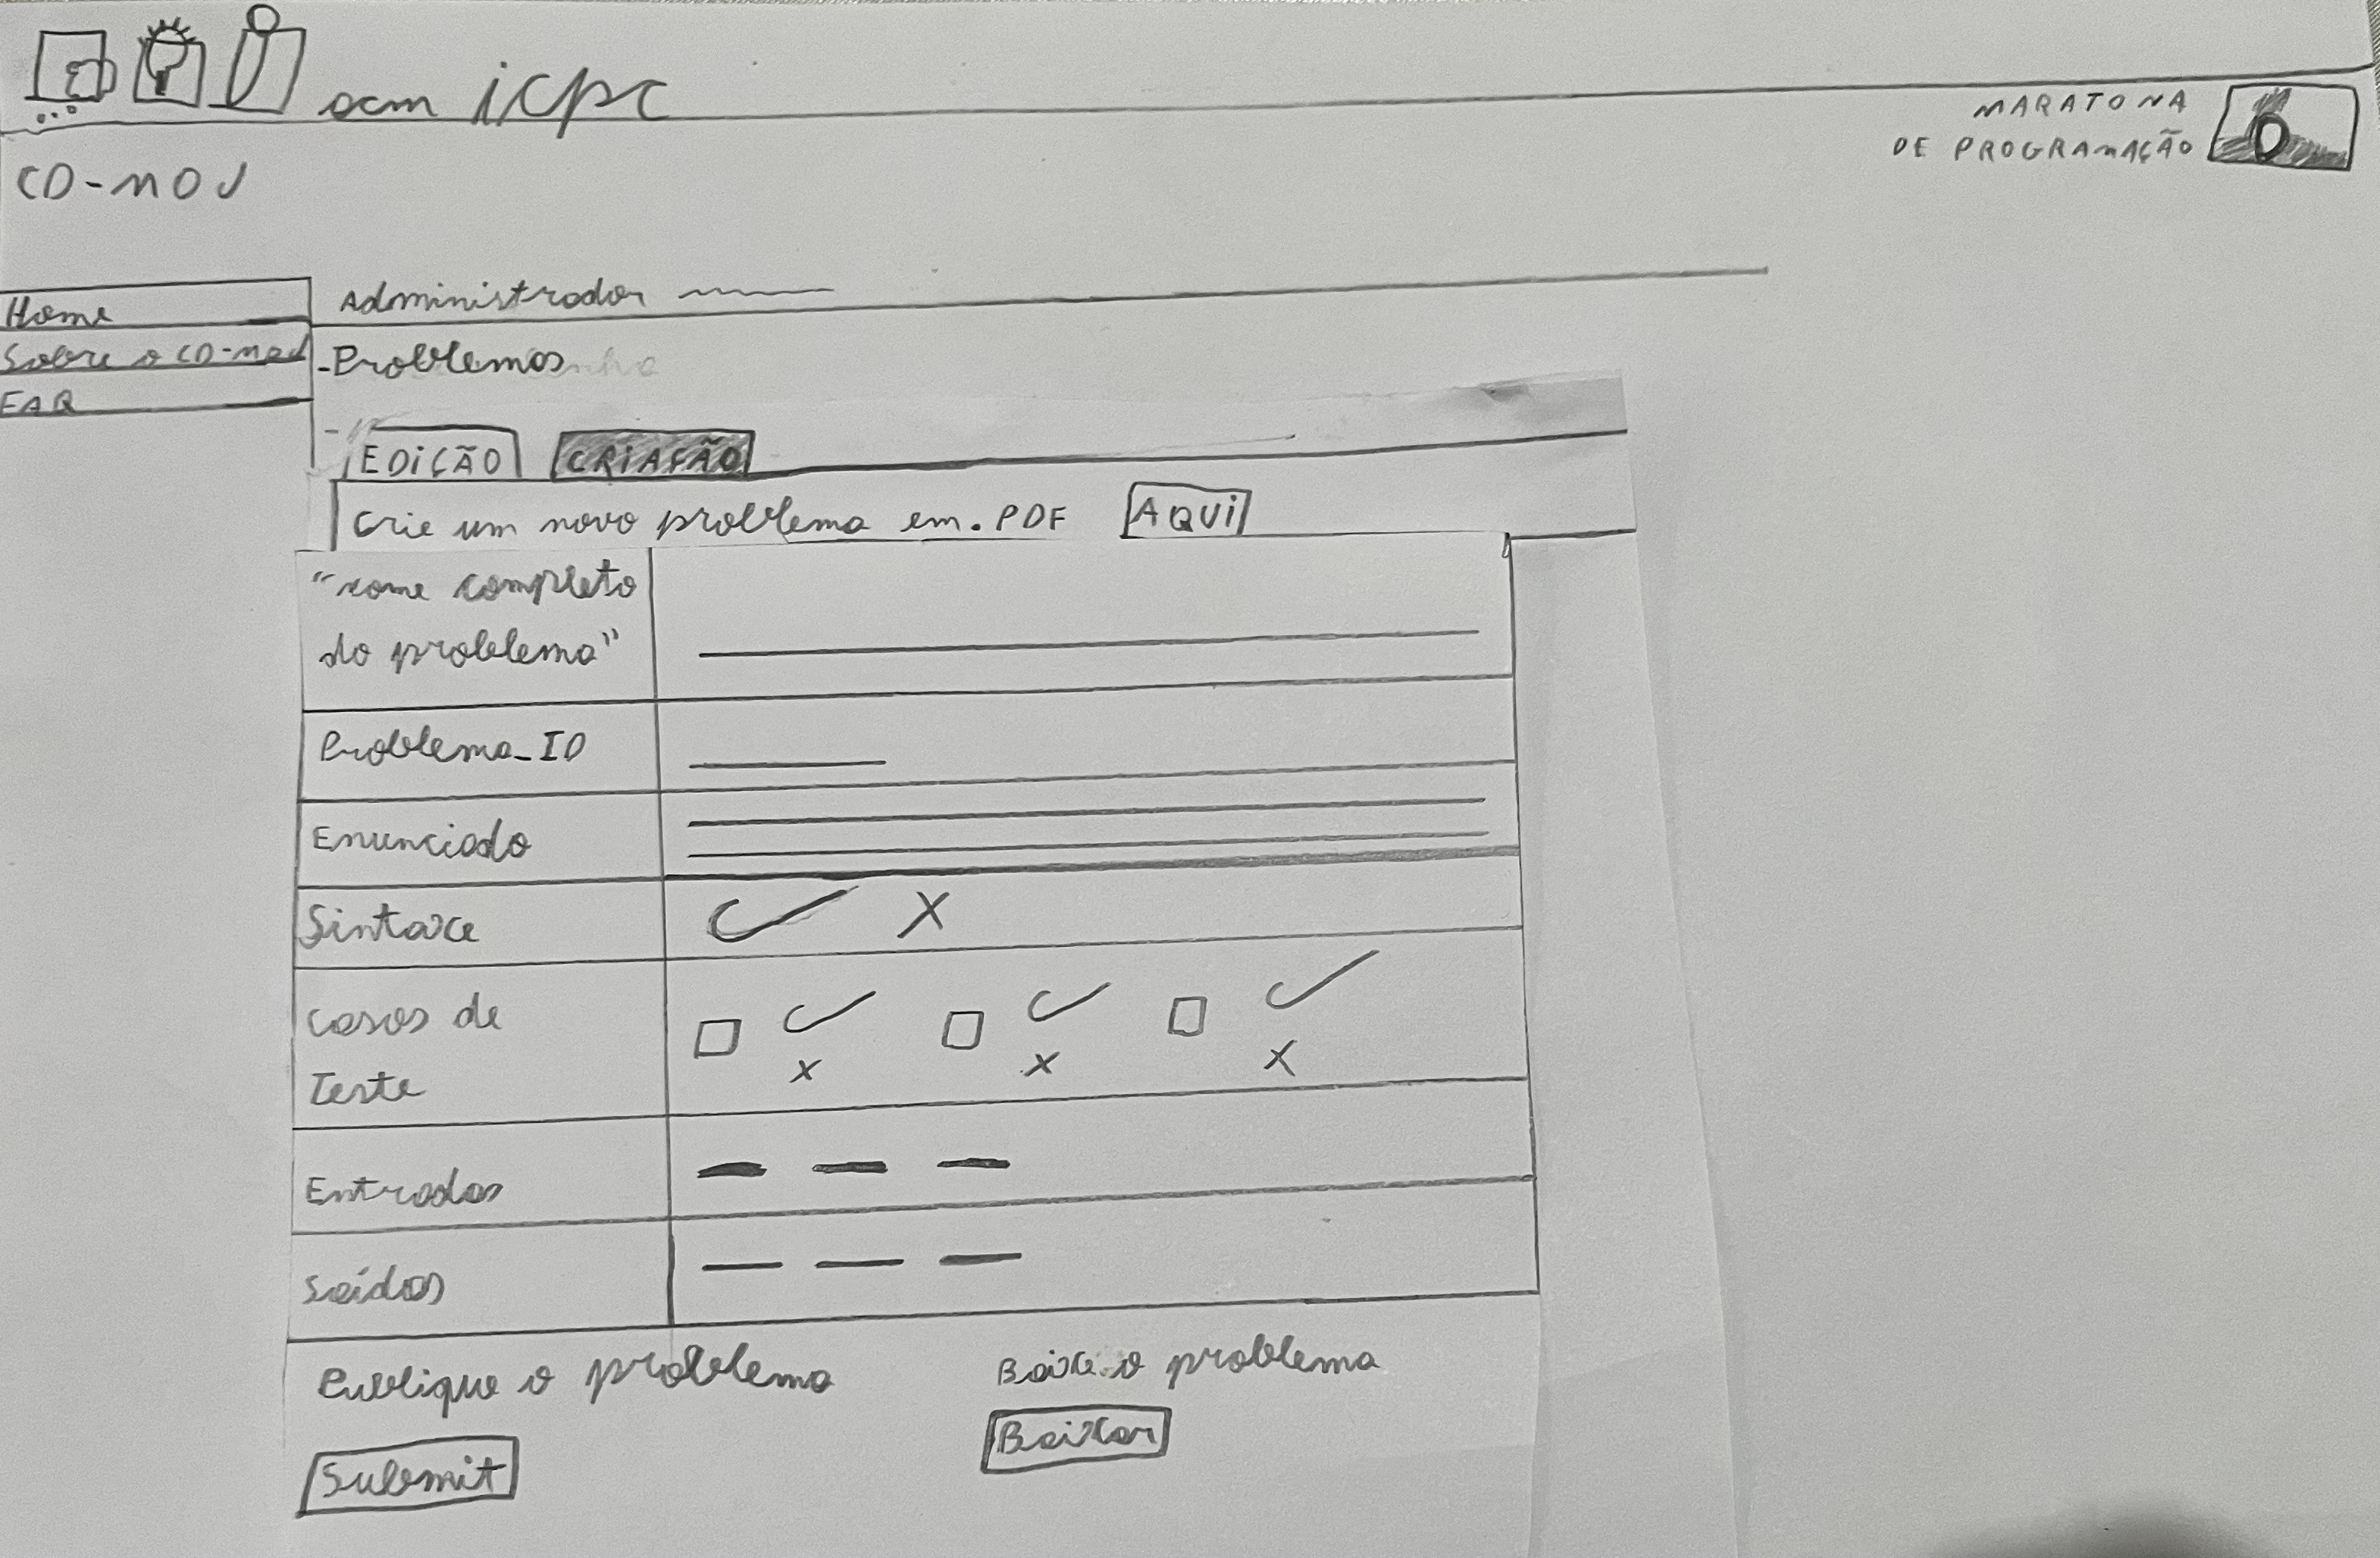 acm icpc
MARATONA
DE PROGRAMAÇÃO
CD-MOJ
Home
Sobre o CD-MOJ
FAQ
Administrador
- Problemas
EDIÇÃO CRIAÇÃO
Crie um novo problema em .PDF AQUI
"nome completo
do problema"
Problema_ID
Enunciado
Sintaxe
Casos de
Teste
Entradas
Saídas
Publique o problema Baixe o problema
Submit Baixar